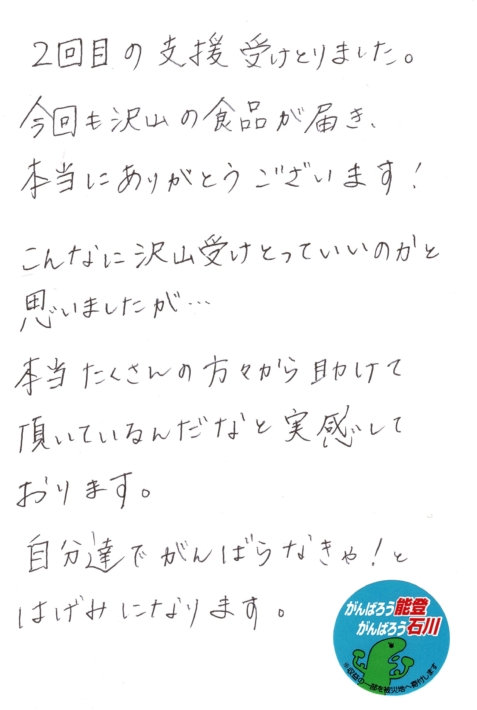 2回目の支援受けとりました。
今回も沢山の食品が届き、
本当にありがとうございます!
こんなに沢山受けとっていいのかと
思いましたが…
本当たくさんの方々から助けて
頂いているんだなと実感して
おります。
自分達でがんばらなきゃ!と
はげみになります。
がんばろう能登
がんばろう石川
※収益の一部を被災地へ寄付します